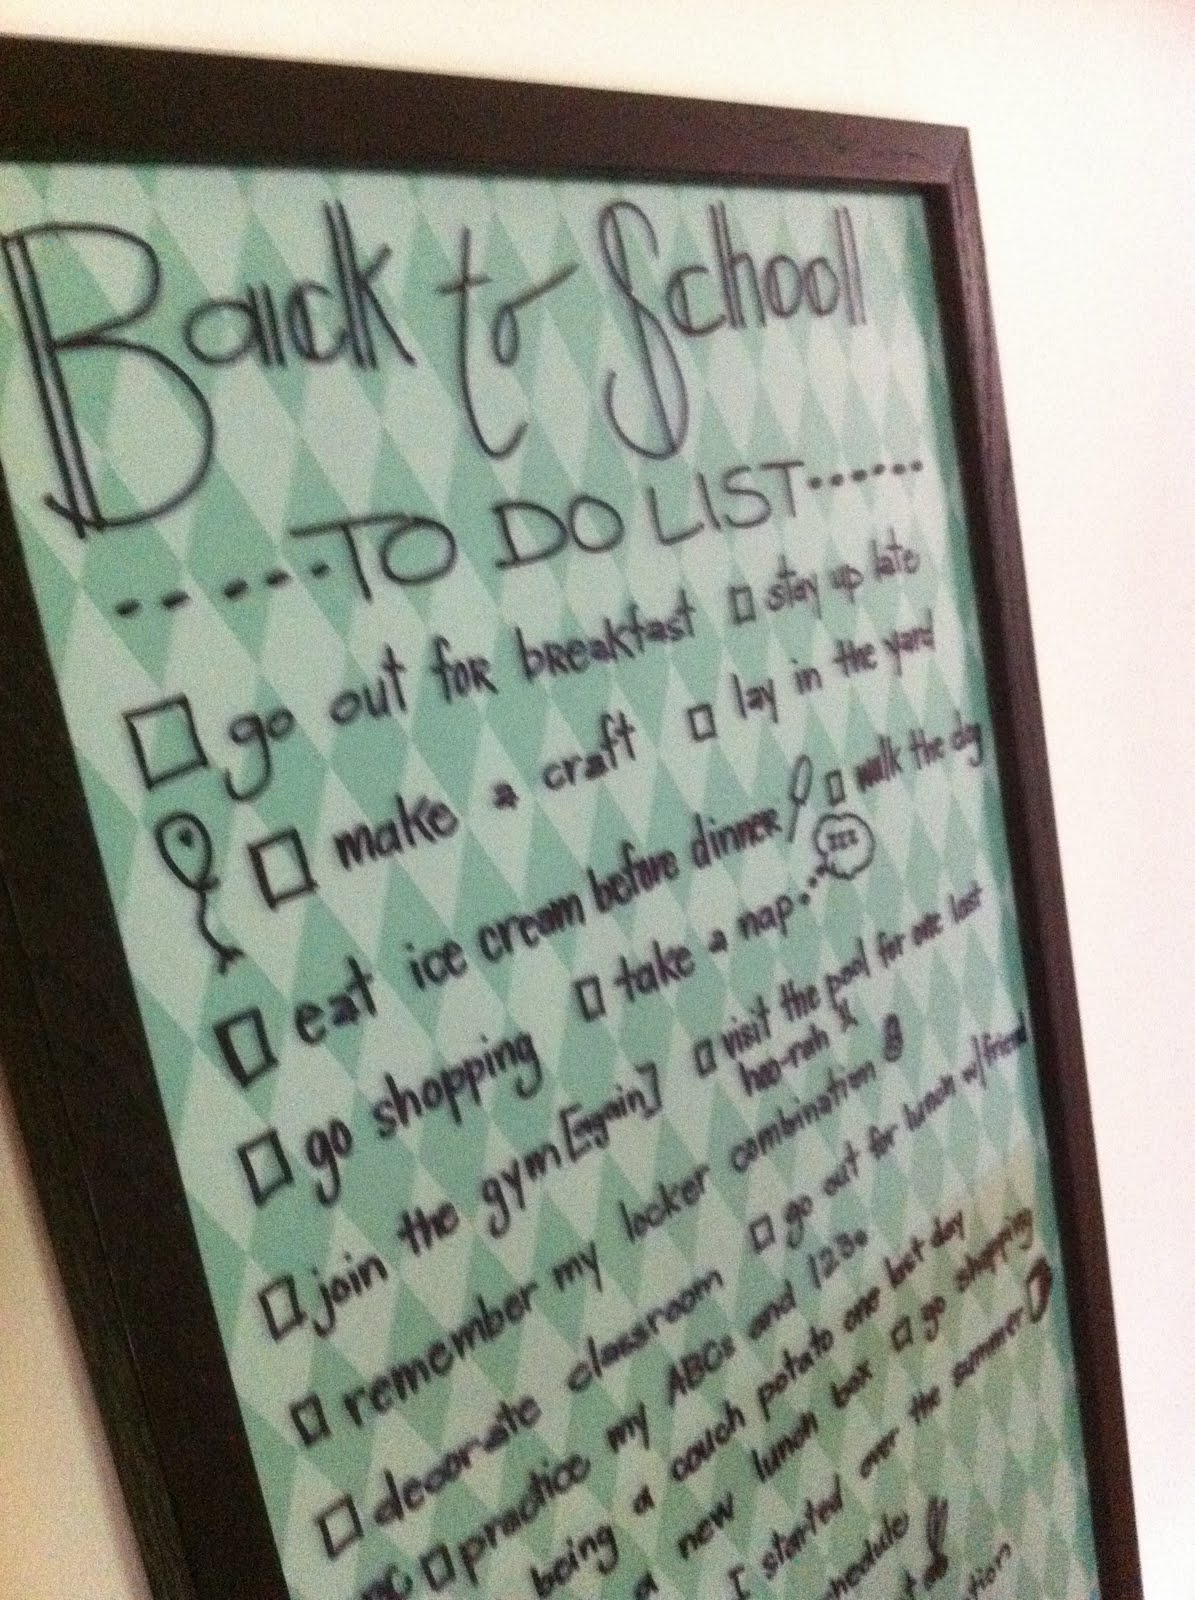 Back to School
TO DO LIST
go out for breakfast stay up late
make a craft lay in the yard
eat ice cream before dinner walk the dog
go shopping take a nap... zzz
join the gym [again] visit the pool for one last
hoo-rah
remember my locker combination
decorate classroom go out for lunch w/friend
practice my ABCs and 123s
being a couch potato one last day
a new lunch box go shopping
I started over the summer